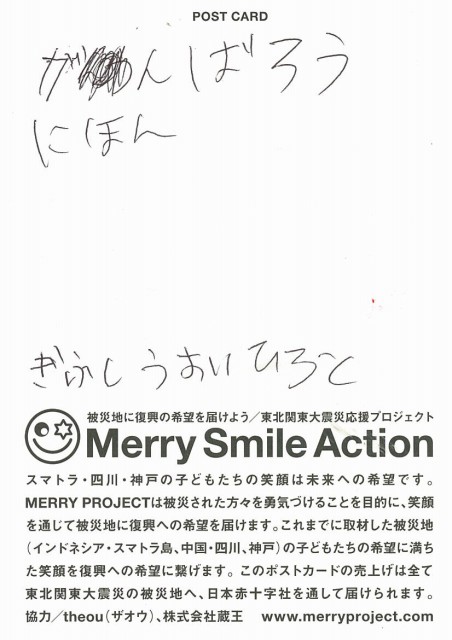 POST CARD
がんばろう
にほん
ぎふし うおい ひろと
被災地に復興の希望を届けよう／東北関東大震災応援プロジェクト
Merry Smile Action
スマトラ・四川・神戸の子どもたちの笑顔は未来への希望です。
MERRY PROJECTは被災された方々を勇気づけることを目的に、笑顔
を通じて被災地に復興への希望を届けます。これまでに取材した被災地
（インドネシア・スマトラ島、中国・四川、神戸）の子どもたちの希望に満ち
た笑顔を復興への希望に繋げます。このポストカードの売上げは全て
東北関東大震災の被災地へ、日本赤十字社を通して届けられます。
協力／theou（ザオウ）、株式会社蔵王 www.merryproject.com